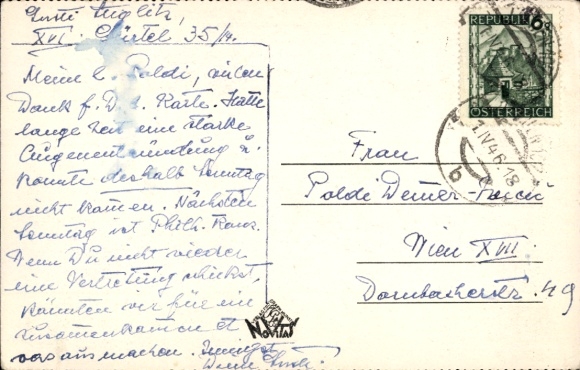 XVI. Gürtel 35/14.
Meine l. Poldi, vielen
Dank f. D. l. Karte. Hatte
lange Zeit eine starke
Augenentzündung u.
konnte deshalb Sonntag
nicht kommen. Nächsten
Sonntag ist Philh. Konz.
Wenn Du nicht wieder
eine Vertretung schickst,
könnten wir für ein
zusammenkommen et
was ausmachen. Innigst
Deine
REPUBLIK
6
ÖSTERREICH
1.IV.46.18
b
Frau
Poldi
Wien XVII.
Dornbacherstr. 49
NOVITAS